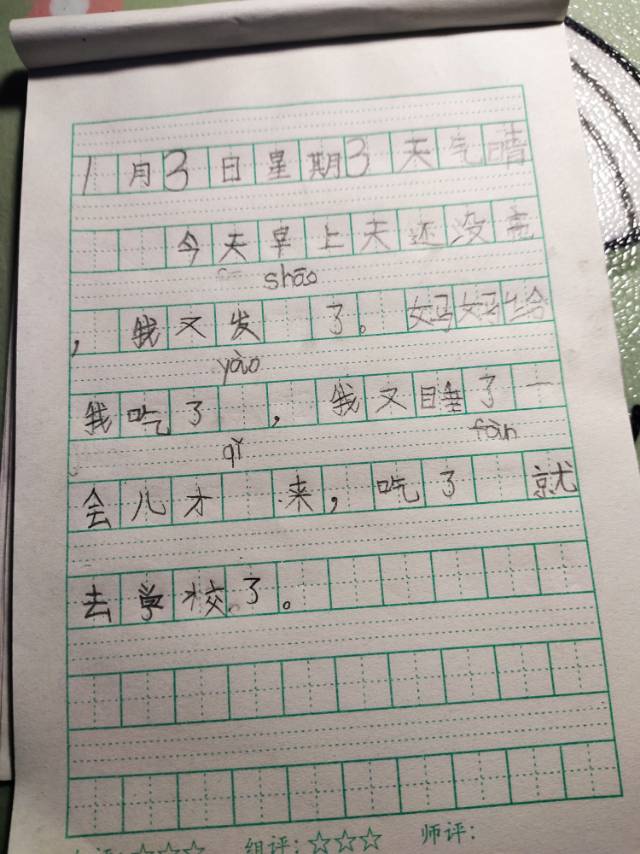 1月3日星期3天气晴
今天早上天还没亮
shāo
,我又发 了。妈妈给
yào
我吃了 ,我又睡了一
qǐ fàn
会儿才 来,吃了 就
去学校了。
组评:☆☆☆ 师评: